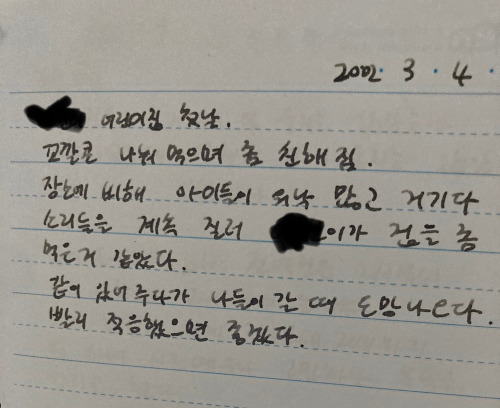 2002. 3. 4.
어린이집 첫날.
꼬깔콘 나눠 먹으며 좀 친해짐.
장소에 비해 아이들이 워낙 많고 거기다
소리들을 계속 질러 이가 겁을 좀
먹은거 같았다.
같이 있어주다가 나들이 갈 때 도망나오다.
빨리 적응했으면 좋겠다.